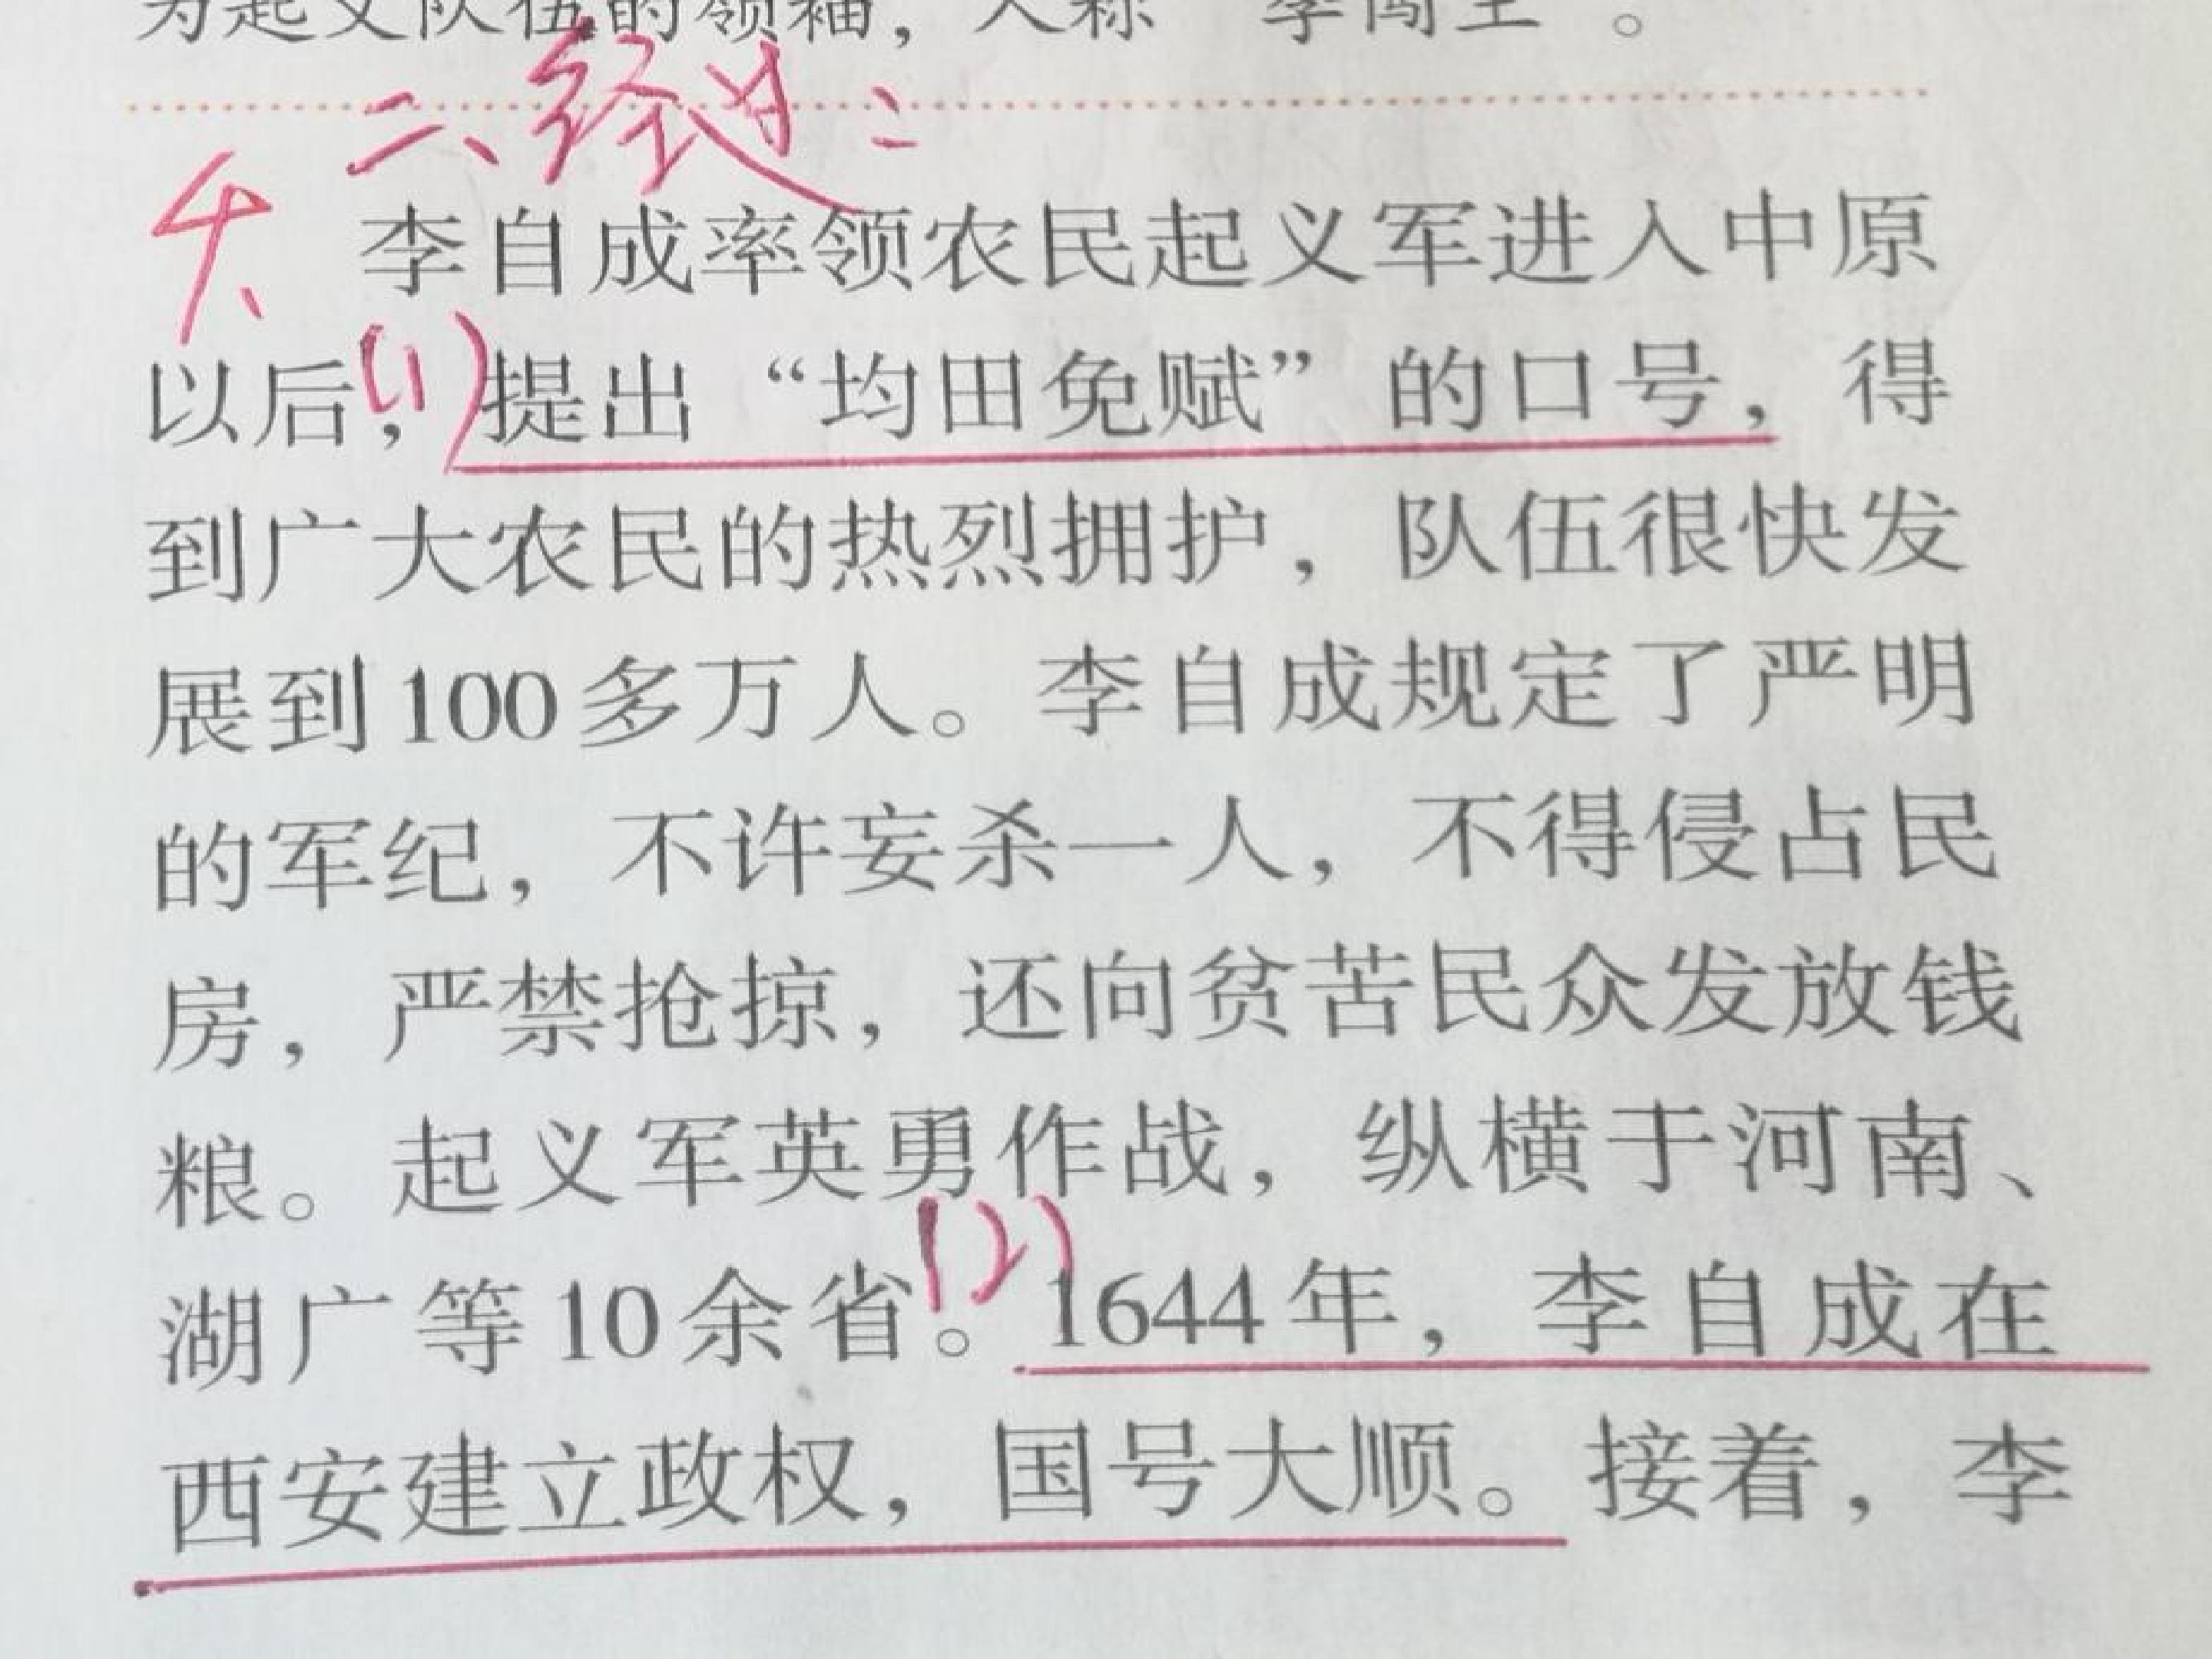 为起义队伍的领袖，人称“李闯王”。
二、经过：
李自成率领农民起义军进入中原
以后，(1)提出“均田免赋”的口号，得
到广大农民的热烈拥护，队伍很快发
展到100多万人。李自成规定了严明
的军纪，不许妄杀一人，不得侵占民
房，严禁抢掠，还向贫苦民众发放钱
粮。起义军英勇作战，纵横于河南、
湖广等10余省。(2)1644年，李自成在
西安建立政权，国号大顺。接着，李